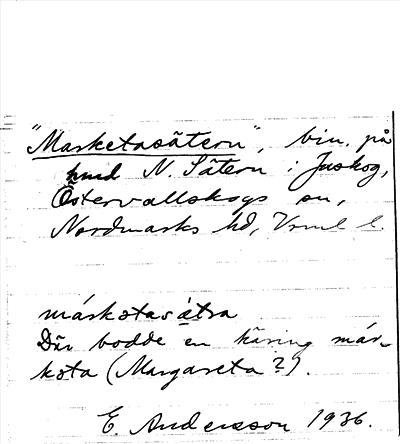 "Marketasätern", bin. på
hmd N. Sätern i Juskog,
Östervallskogs sn,
Nordmarks hd, Vrml l.
márkǝtasä̀tra
Där bodde en käring már-
kǝta (Margareta?).
E. Andersson 1936.